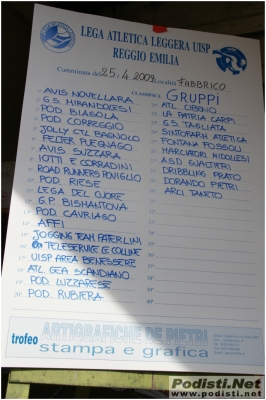 LEGA ATLETICA LEGGERA UISP
REGGIO EMILIA
Camminata del 25.4.2009 Località FABBRICO
CLASSIFICA GRUPPI
AVIS NOVELLARA
G.S. MIRANDOLESI
POD. BIASOLA
POD CORREGGIO
JOLLY CTL BAGNOLO
FELTER PUEGNAGO
AVIS SUZZARA
IOTTI E CORRADINI
ROAD RUNNERS POVIGLIO
POD. RIESE
LEGA DEL CUORE
G.P. BISMANTOVA
POD. CAVRIAGO
AFFI
JOGGING TEAM PATERLINI
TELESERVICE LE COLLINE
UISP AREA BENESSERE
ATL GEA SCANDIANO
POD. LUZZARESE
POD. RUBIERA
ATL. CIBENO
LA PATRIA CARPI
G.S. TAGLIATA
SINTOFARM ATLETICA
FONTANA FOSSOLI
MARCIATORI NIDOLESI
A.S.D GUALTIERI
DRIBBLING PRATO
DORANDO PIETRI
ARCI TANETO
trofeo ARTIGRAFICHE DE PIETRI
stampa e grafica
Podisti.Net
www.podisti.net